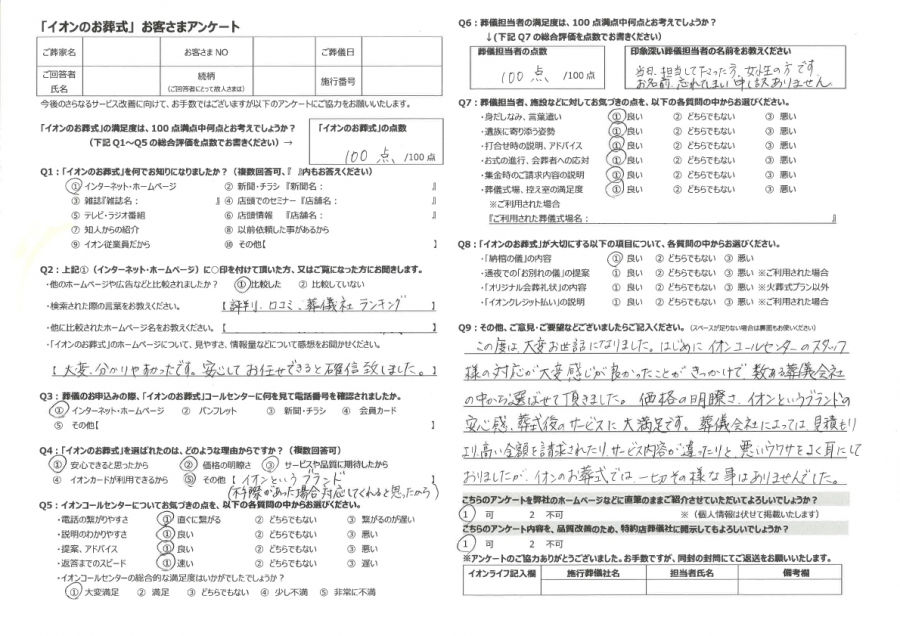 「イオンのお葬式」お客さまアンケート
ご葬家名
お客さまNO
ご葬儀日
ご回答者
氏名
続柄
(ご回答者にとって故人さまは)
施行番号
今後のさらなるサービス改善に向けて、お手数ではございますが以下のアンケートにご協力をお願いいたします。
「イオンのお葬式」の満足度は、100点満点中何点とお考えでしょうか？
(下記Q1～Q5の総合評価を点数でお書きください)→
「イオンのお葬式」の点数
100点 /100点
Q1：「イオンのお葬式」を何でお知りになりましたか？（複数回答可、『 』内もお答えください）
① インターネット・ホームページ ② 新聞・チラシ『新聞名： 』
③ 雑誌『雑誌名： 』 ④ 店頭でのセミナー『店舗名： 』
⑤ テレビ・ラジオ番組 ⑥ 店頭情報 『店舗名： 』
⑦ 知人からの紹介 ⑧ 以前依頼した事があるから
⑨ イオン従業員だから ⑩ その他【 】
Q2：上記①（インターネット・ホームページ）に○印を付けて頂いた方、又はご覧になった方にお聞きします。
・他のホームページや広告などと比較されましたか？ ①比較した ② 比較していない
・検索された際の言葉をお教えください。 【評判、口コミ、葬儀社ランキング】
・他に比較されたホームページ名をお教えください。【 】
・「イオンのお葬式」のホームページについて、見やすさ、情報量などについて感想をお聞かせください。
【大変、分かりやすかったです。安心してお任せできると確信致しました。】
Q3：葬儀のお申込みの際、「イオンのお葬式」コールセンターに何を見て電話番号を確認されましたか。
① インターネット・ホームページ ② パンフレット ③ 新聞・チラシ ④ 会員カード
⑤ その他【 】
Q4：「イオンのお葬式」を選ばれたのは、どのような理由からですか？（複数回答可）
① 安心できると思ったから ② 価格の明瞭さ ③ サービスや品質に期待したから
④ イオンカードが利用できるから ⑤ その他【イオンというブランド
(不手際があった場合対応してくれると思ったから)】
Q5：イオンコールセンターについてお気づきの点を、以下の各質問の中からお選びください。
・電話の繋がりやすさ ① 直ぐに繋がる ② どちらでもない ③ 繋がるのが遅い
・説明のわかりやすさ ① 良い ② どちらでもない ③ 悪い
・提案、アドバイス ① 良い ② どちらでもない ③ 悪い
・返答までのスピード ① 速い ② どちらでもない ③ 遅い
・イオンコールセンターの総合的な満足度はいかがでしたでしょうか？
① 大変満足 ② 満足 ③ どちらでもない ④ 少し不満 ⑤ 非常に不満
Q6：葬儀担当者の満足度は、100点満点中何点とお考えでしょうか？
↓(下記Q7の総合評価を点数でお書きください)
葬儀担当者の点数
100点 /100点
印象深い葬儀担当者の名前をお教えください
当日、担当して下さった方、女性の方です。
お名前、忘れてしまい申し訳ありません。
Q7：葬儀担当者、施設などに対してお気づきの点を、以下の各質問の中からお選びください。
・身だしなみ、言葉遣い ① 良い ② どちらでもない ③ 悪い
・遺族に寄り添う姿勢 ① 良い ② どちらでもない ③ 悪い
・打合せ時の説明、アドバイス ① 良い ② どちらでもない ③ 悪い
・お式の進行、会葬者への応対 ① 良い ② どちらでもない ③ 悪い
・集金時のご請求内容の説明 ① 良い ② どちらでもない ③ 悪い
・葬儀式場、控え室の満足度 ① 良い ② どちらでもない ③ 悪い
※ご利用された場合
『ご利用された葬儀式場名： 』
Q8：「イオンのお葬式」が大切にする以下の項目について、各質問の中からお選びください。
・「納棺の儀」の内容 ① 良い ② どちらでもない ③ 悪い
・通夜での「お別れの儀」の提案 ① 良い ② どちらでもない ③ 悪い ※ご利用された場合
・「オリジナル会葬礼状」の内容 ① 良い ② どちらでもない ③ 悪い ※火葬式プラン以外
・「イオンクレジット払い」の説明 ① 良い ② どちらでもない ③ 悪い ※ご利用された場合
Q9：その他、ご意見・ご要望などございましたらご記入ください。（スペースが足りない場合は裏面もお使いください）
この度は、大変お世話になりました。はじめにイオンコールセンターのスタッフ
様の対応が大変感じが良かったことがきっかけで、数ある葬儀会社
の中から選ばせて頂きました。価格の明瞭さ、イオンというブランドの
安心感、葬式後のサービスに大満足です。葬儀会社によっては、見積もり
より高い金額を請求されたり、サービス内容が違ったりと悪いウワサをよく耳にして
おりましたが、イオンのお葬式では一切その様な事はありませんでした。
こちらのアンケートを弊社のホームページなどに直筆のままご紹介させていただいてよろしいでしょうか？
1 可 2 不可 ※（個人情報は伏せて掲載いたします）
こちらのアンケート内容を、品質改善のため、特約店葬儀社に開示してもよろしいでしょうか？
1 可 2 不可
※アンケートのご協力ありがとうございました。お手数ですが、同封の封筒にてご返送をお願いいたします。
イオンライフ記入欄 施行葬儀社名 担当者氏名 備考欄